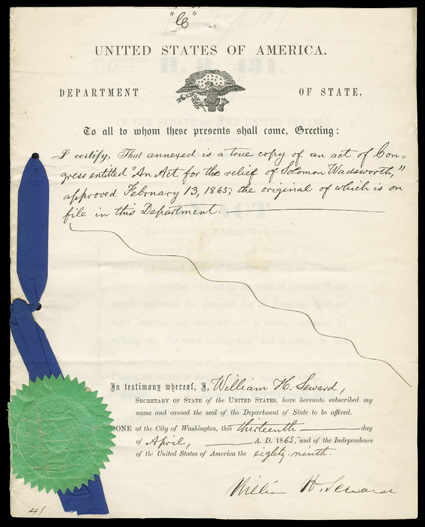 "C"
UNITED STATES OF AMERICA.
DEPARTMENT OF STATE,
To all to whom these presents shall come, Greeting:
I certify, That annexed is a true copy of an act of Con-
gress entitled "An Act for the relief of Solomon Wadsworth,"
approved February 13, 1865; the original of which is on
file in this Department.
In testimony whereof, I, William H. Seward,
SECRETARY OF STATE OF THE UNITED STATES, have hereunto subscribed my
name and caused the seal of the Department of State to be affixed.
DONE at the City of Washington, this thirteenth day
of April, A. D. 1865, and of the Independence
of the United States of America the eighty-ninth.
William H. Seward